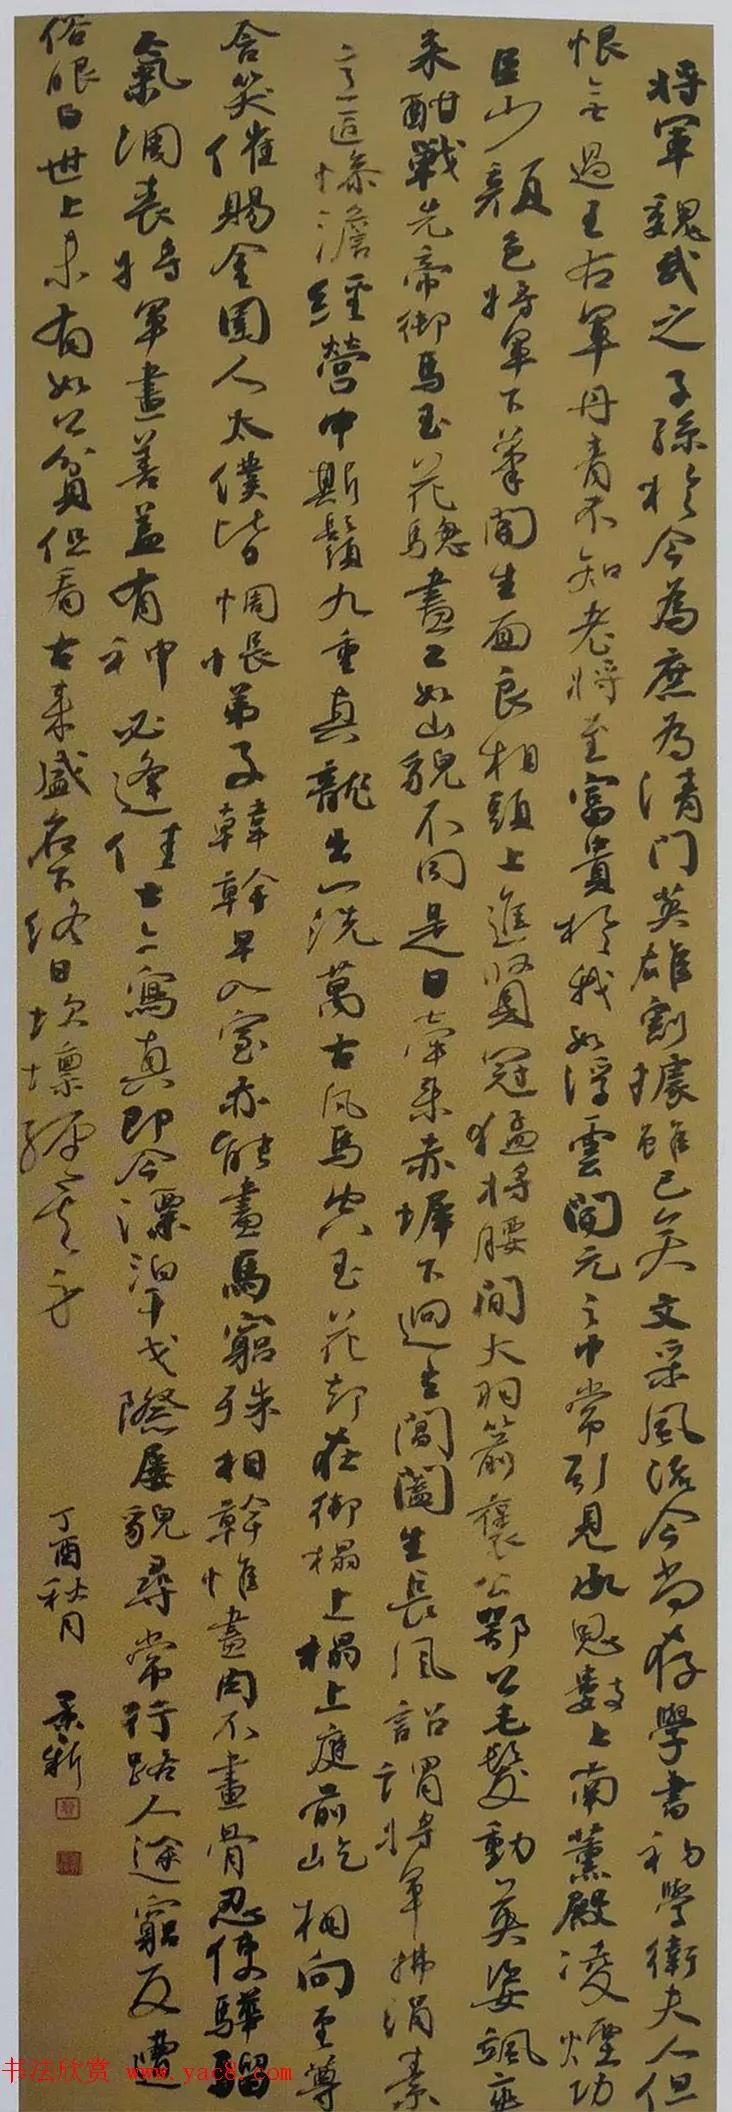 將軍魏武之子孫於今為庶為清門英雄割據雖已矣文采風流今尚存學書初學衛夫人但
恨無過王右軍丹青不知老將至富貴於我如浮雲開元之中常引見承恩數上南薰殿凌煙功
臣少顏色將軍下筆開生面良相頭上進賢冠猛將腰間大羽箭褒公鄂公毛髮動英姿颯爽
來酣戰先帝御馬玉花驄畫工如山貌不同是日牽來赤墀下迥立閶闔生長風詔謂將軍拂絹素
意匠慘澹經營中斯鬚九重真龍出一洗萬古凡馬空玉花却在御榻上榻上庭前屹相向至尊
含笑催賜金圉人太僕皆惆悵弟子韓幹早入室亦能畫馬窮殊相幹惟畫肉不畫骨忍使驊騮
氣凋喪將軍畫善蓋有神必逢佳士亦寫真即今漂泊干戈際屢貌尋常行路人途窮反遭
俗眼白世上未有如公貧但看古來盛名下終日坎壈纏其身
丁酉秋月
书法欣赏 www.yac8.com